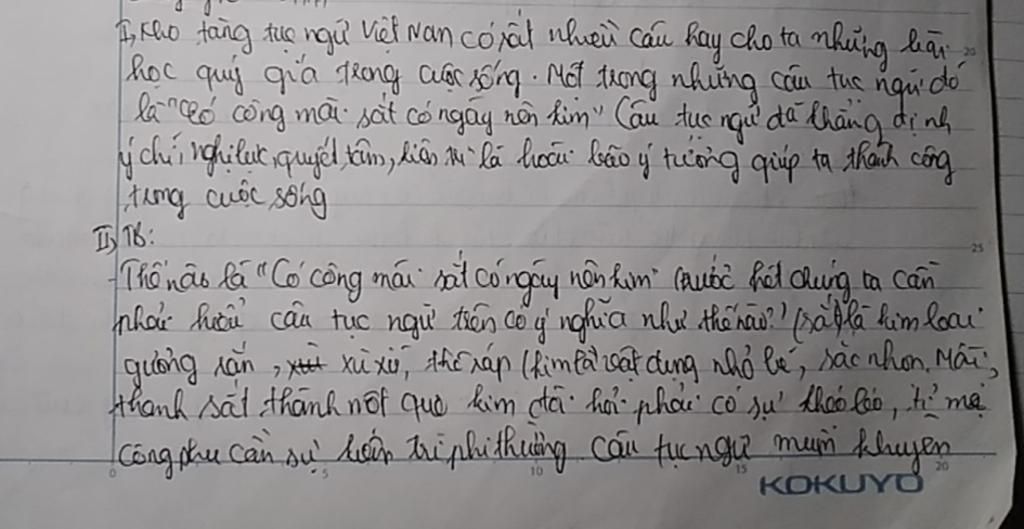 I, Kho tàng tục ngữ Việt Nam có rất nhiều câu hay cho ta những bài
học quý giá trong cuộc sống. Một trong những câu tục ngữ đó
là "Có công mài sắt có ngày nên kim" Câu tục ngữ đã khẳng định
ý chí, nghị lực, quyết tâm, kiên trì là hoài bão ý tưởng giúp ta thành công
trong cuộc sống
II, TB:
-Thế nào là "Có công mài sắt có ngày nên kim" trước hết chúng ta cần
phải hiểu câu tục ngữ trên có ý nghĩa như thế nào? (sắt) là kim loại
cứng rắn, xù xì, thô ráp (kim) là vật dụng nhỏ bé, sắc nhọn. Mài
thanh sắt thành một que kim đòi hỏi phải có sự khéo léo, tỉ mỉ
công phu cần sự kiên trì phi thường câu tục ngữ muốn khuyên
0 5 10 15 20
20
25
KOKUYO